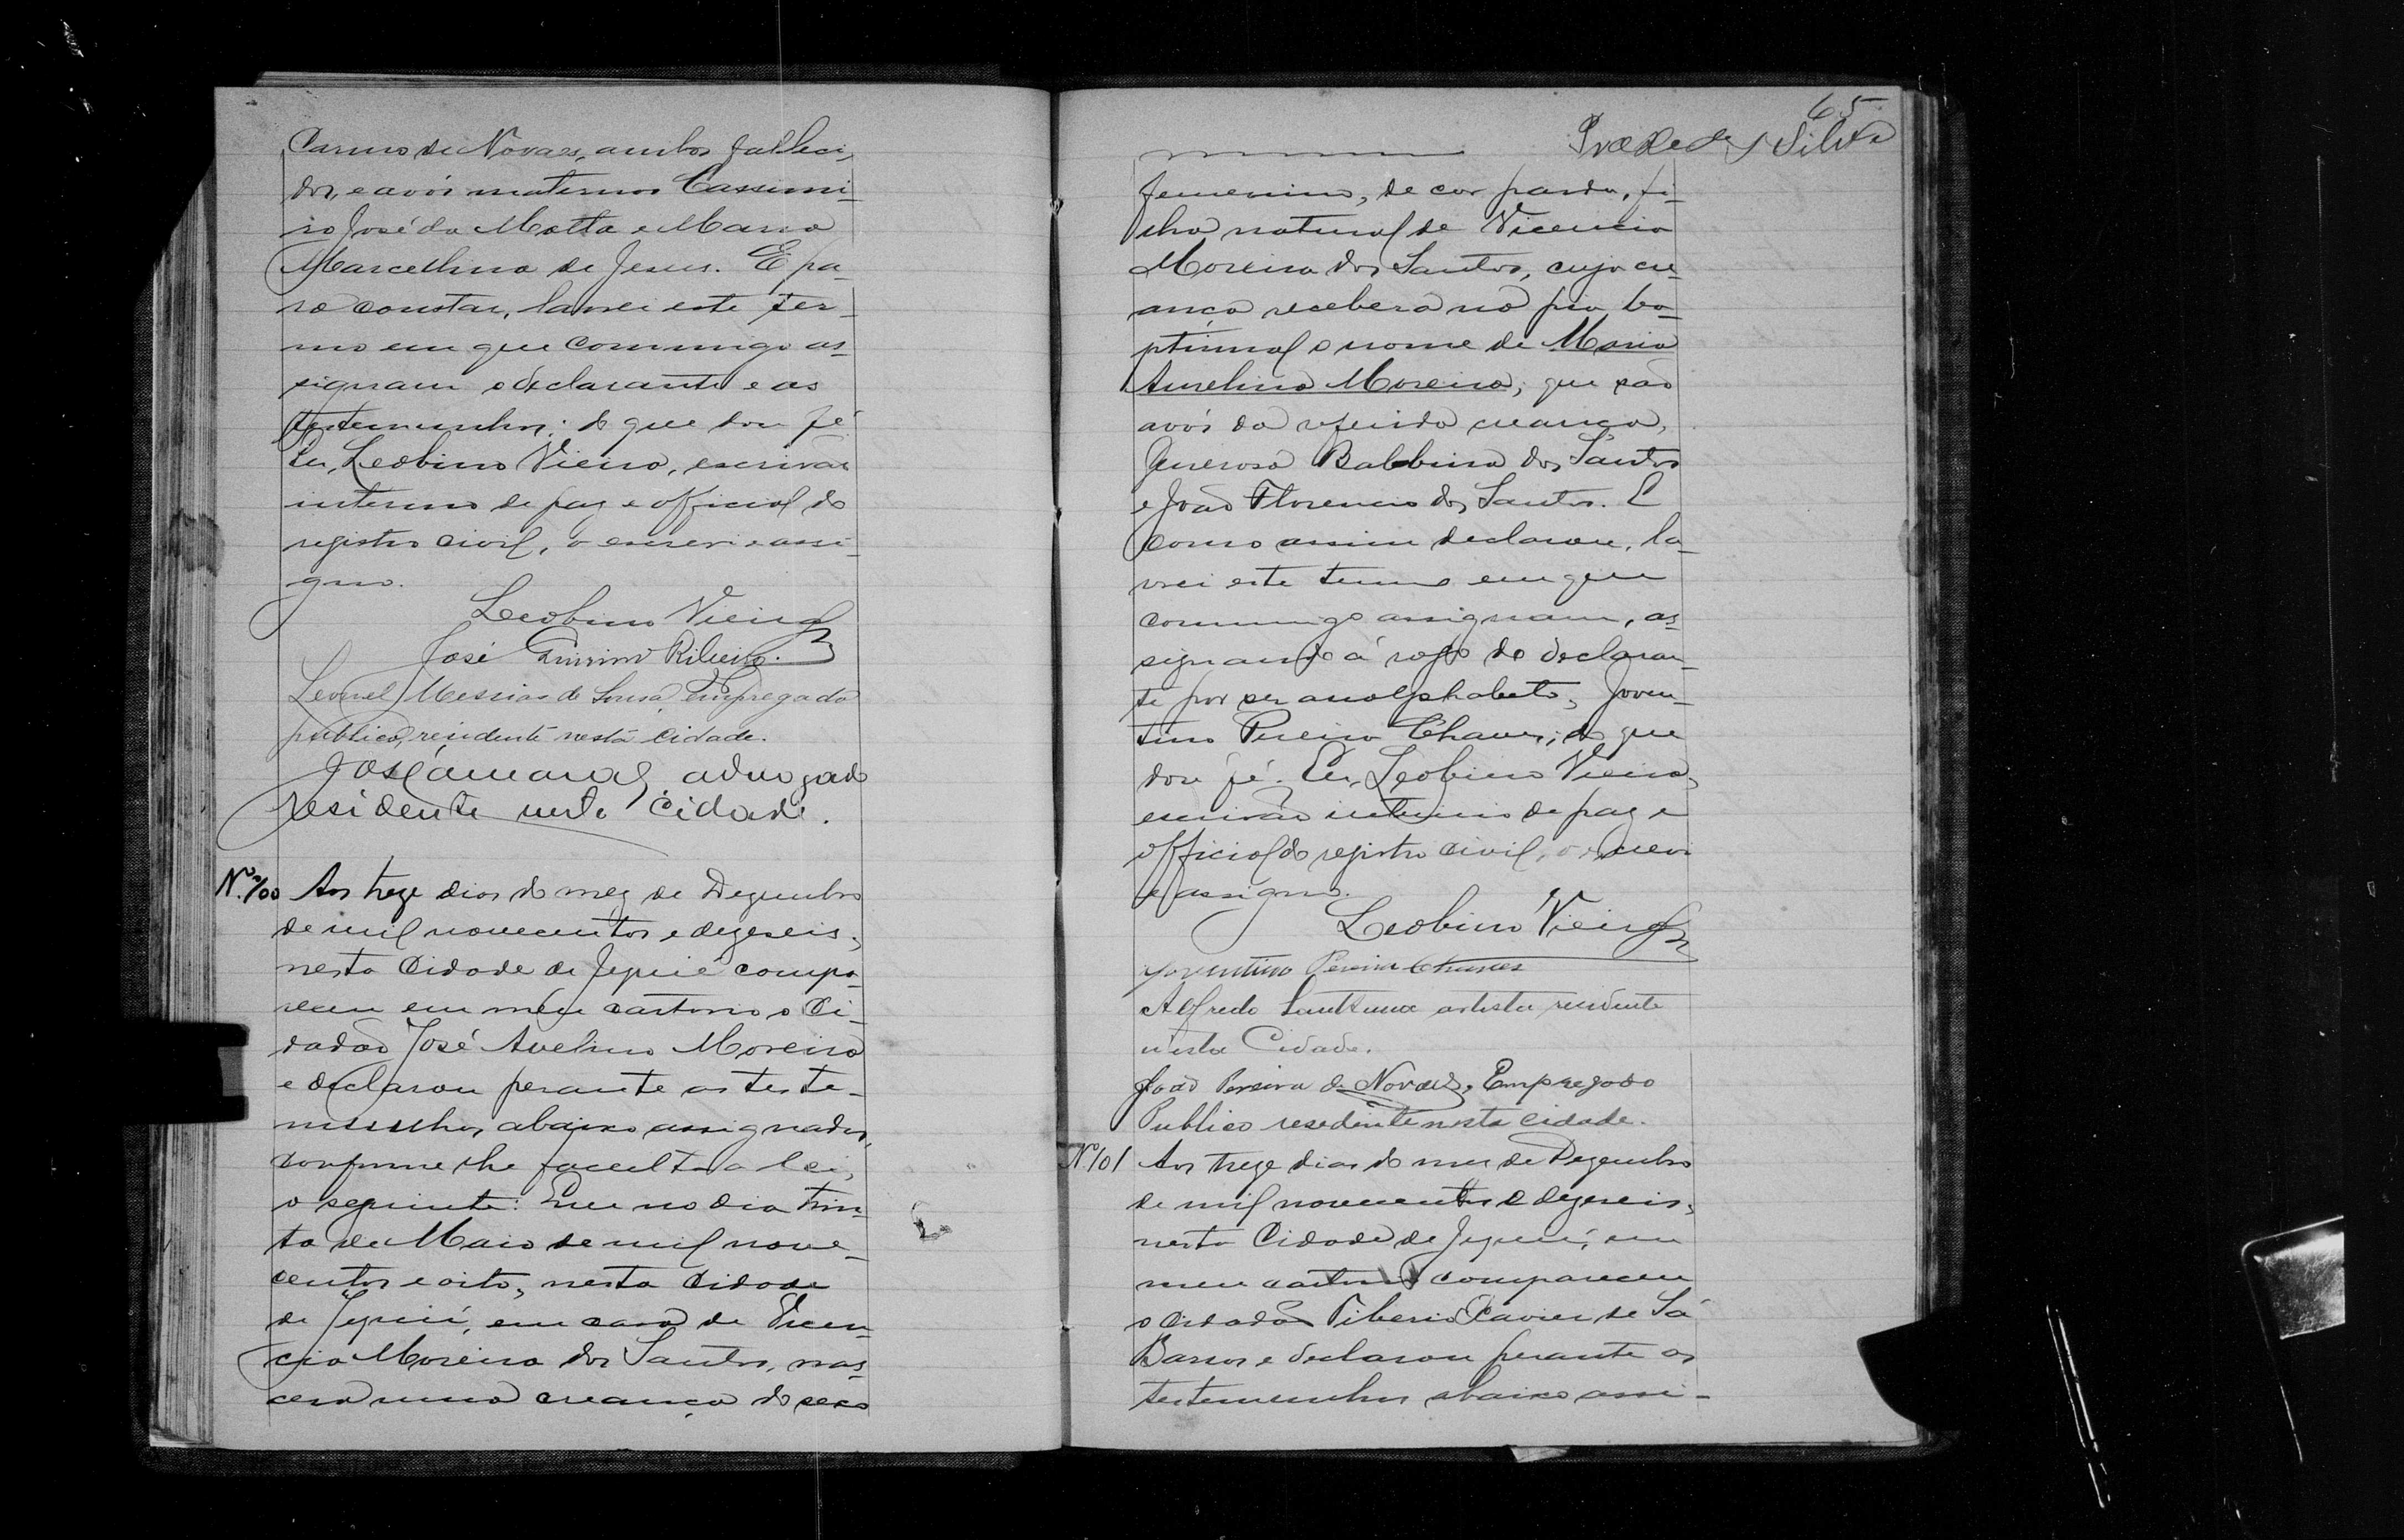 Carmo de Novaes, ambos falleci-
dos, e avós maternos Cassimi-
ro José da Motta e Maria
Marcellina de Jesus. E pa-
ra constar, lavrei este ter-
mo em que commigo as-
signam o declarante e as
testemunhas; do que dou fé
Eu, Leobino Vieira, escrivão
interino de paz e official do
registro civil, o escrevi e assi-
gno.
Leobino Vieira
José Ribeiro.
Leonel Messias de Sousa, Empregado
publico, residente nesta cidade.
advogado
residente nesta cidade.
Nº 100 Aos treze dias do mez de Dezembro
de mil novecentos e dezeseis,
nesta Cidade de Jequié compa-
receu em meu cartorio o Ci-
dadão José Avelino Moreira
e declarou perante as teste-
munhas abaixo assignadas,
conforme lhe faculta a lei,
o seguinte: Que no dia trin-
ta de Maio de mil nove-
centos e oito, nesta Cidade
de Jequié, em casa de Vicen-
cia Moreira dos Santos, nas-
cera uma creança do sexo
65
Silva
femenino, de cor parda, fi-
lha natural de Vicencia
Moreira dos Santos, cuja cre-
ança receberá na pia ba-
ptismal o nome de Maria
Aurelina Moreira; que são
avós da referida creança,
Generosa Balbina dos Santos
e João Florencio dos Santos. E
como assim declarou, la-
vrei este termo em que
commigo assignam, as-
signando á rogo do declaran-
te por ser analphabeto, Joven-
tino Pereira Chaves; do que
dou fé. Eu, Leobino Vieira,
escrivão interino de paz e
official do registro civil, o escrevi
e assigno.
Leobino Vieira
Joventino Pereira Chaves
Alfredo Sant'Anna artista residente
nesta Cidade.
João Pereira de Novaes, Empregado
Publico resedente nesta cidade.
Nº 101 Aos treze dias do mez de Dezembro
de mil novecentos e dezeseis,
nesta Cidade de Jequié, em
meu cartorio compareceu
o Cidadão Tiberio Xavier de Sá
Barros e declarou perante as
testemunhas abaixo assi-